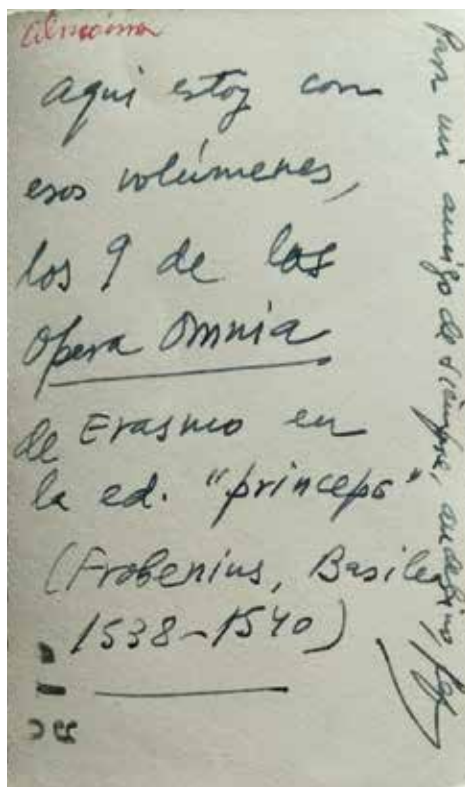 Aqui estoy con
esos volúmenes,
los 9 de las
Opera Omnia
de Erasmo en
la ed. "princeps"
(Frobenius, Basilea
1538-1540)
Para mi amigo de siempre,